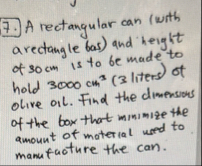 7. A rectangular can (with
a rectangle bas) and height
of 30 cm is to be made to
hold 3000 cm³ (3 liters) of
olive oil. Find the dimensions
of the box that minimize the
amount of material used to
manufacture the can.